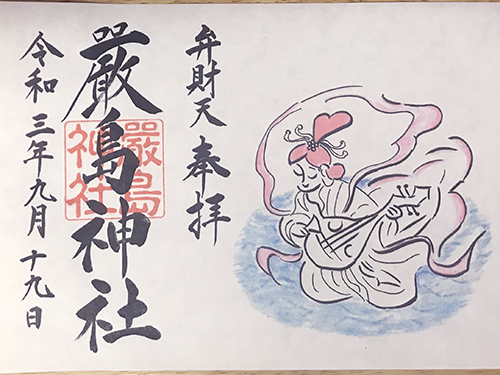 弁財天奉拝
厳島神社
嚴島
神社
令和三年九月十九日